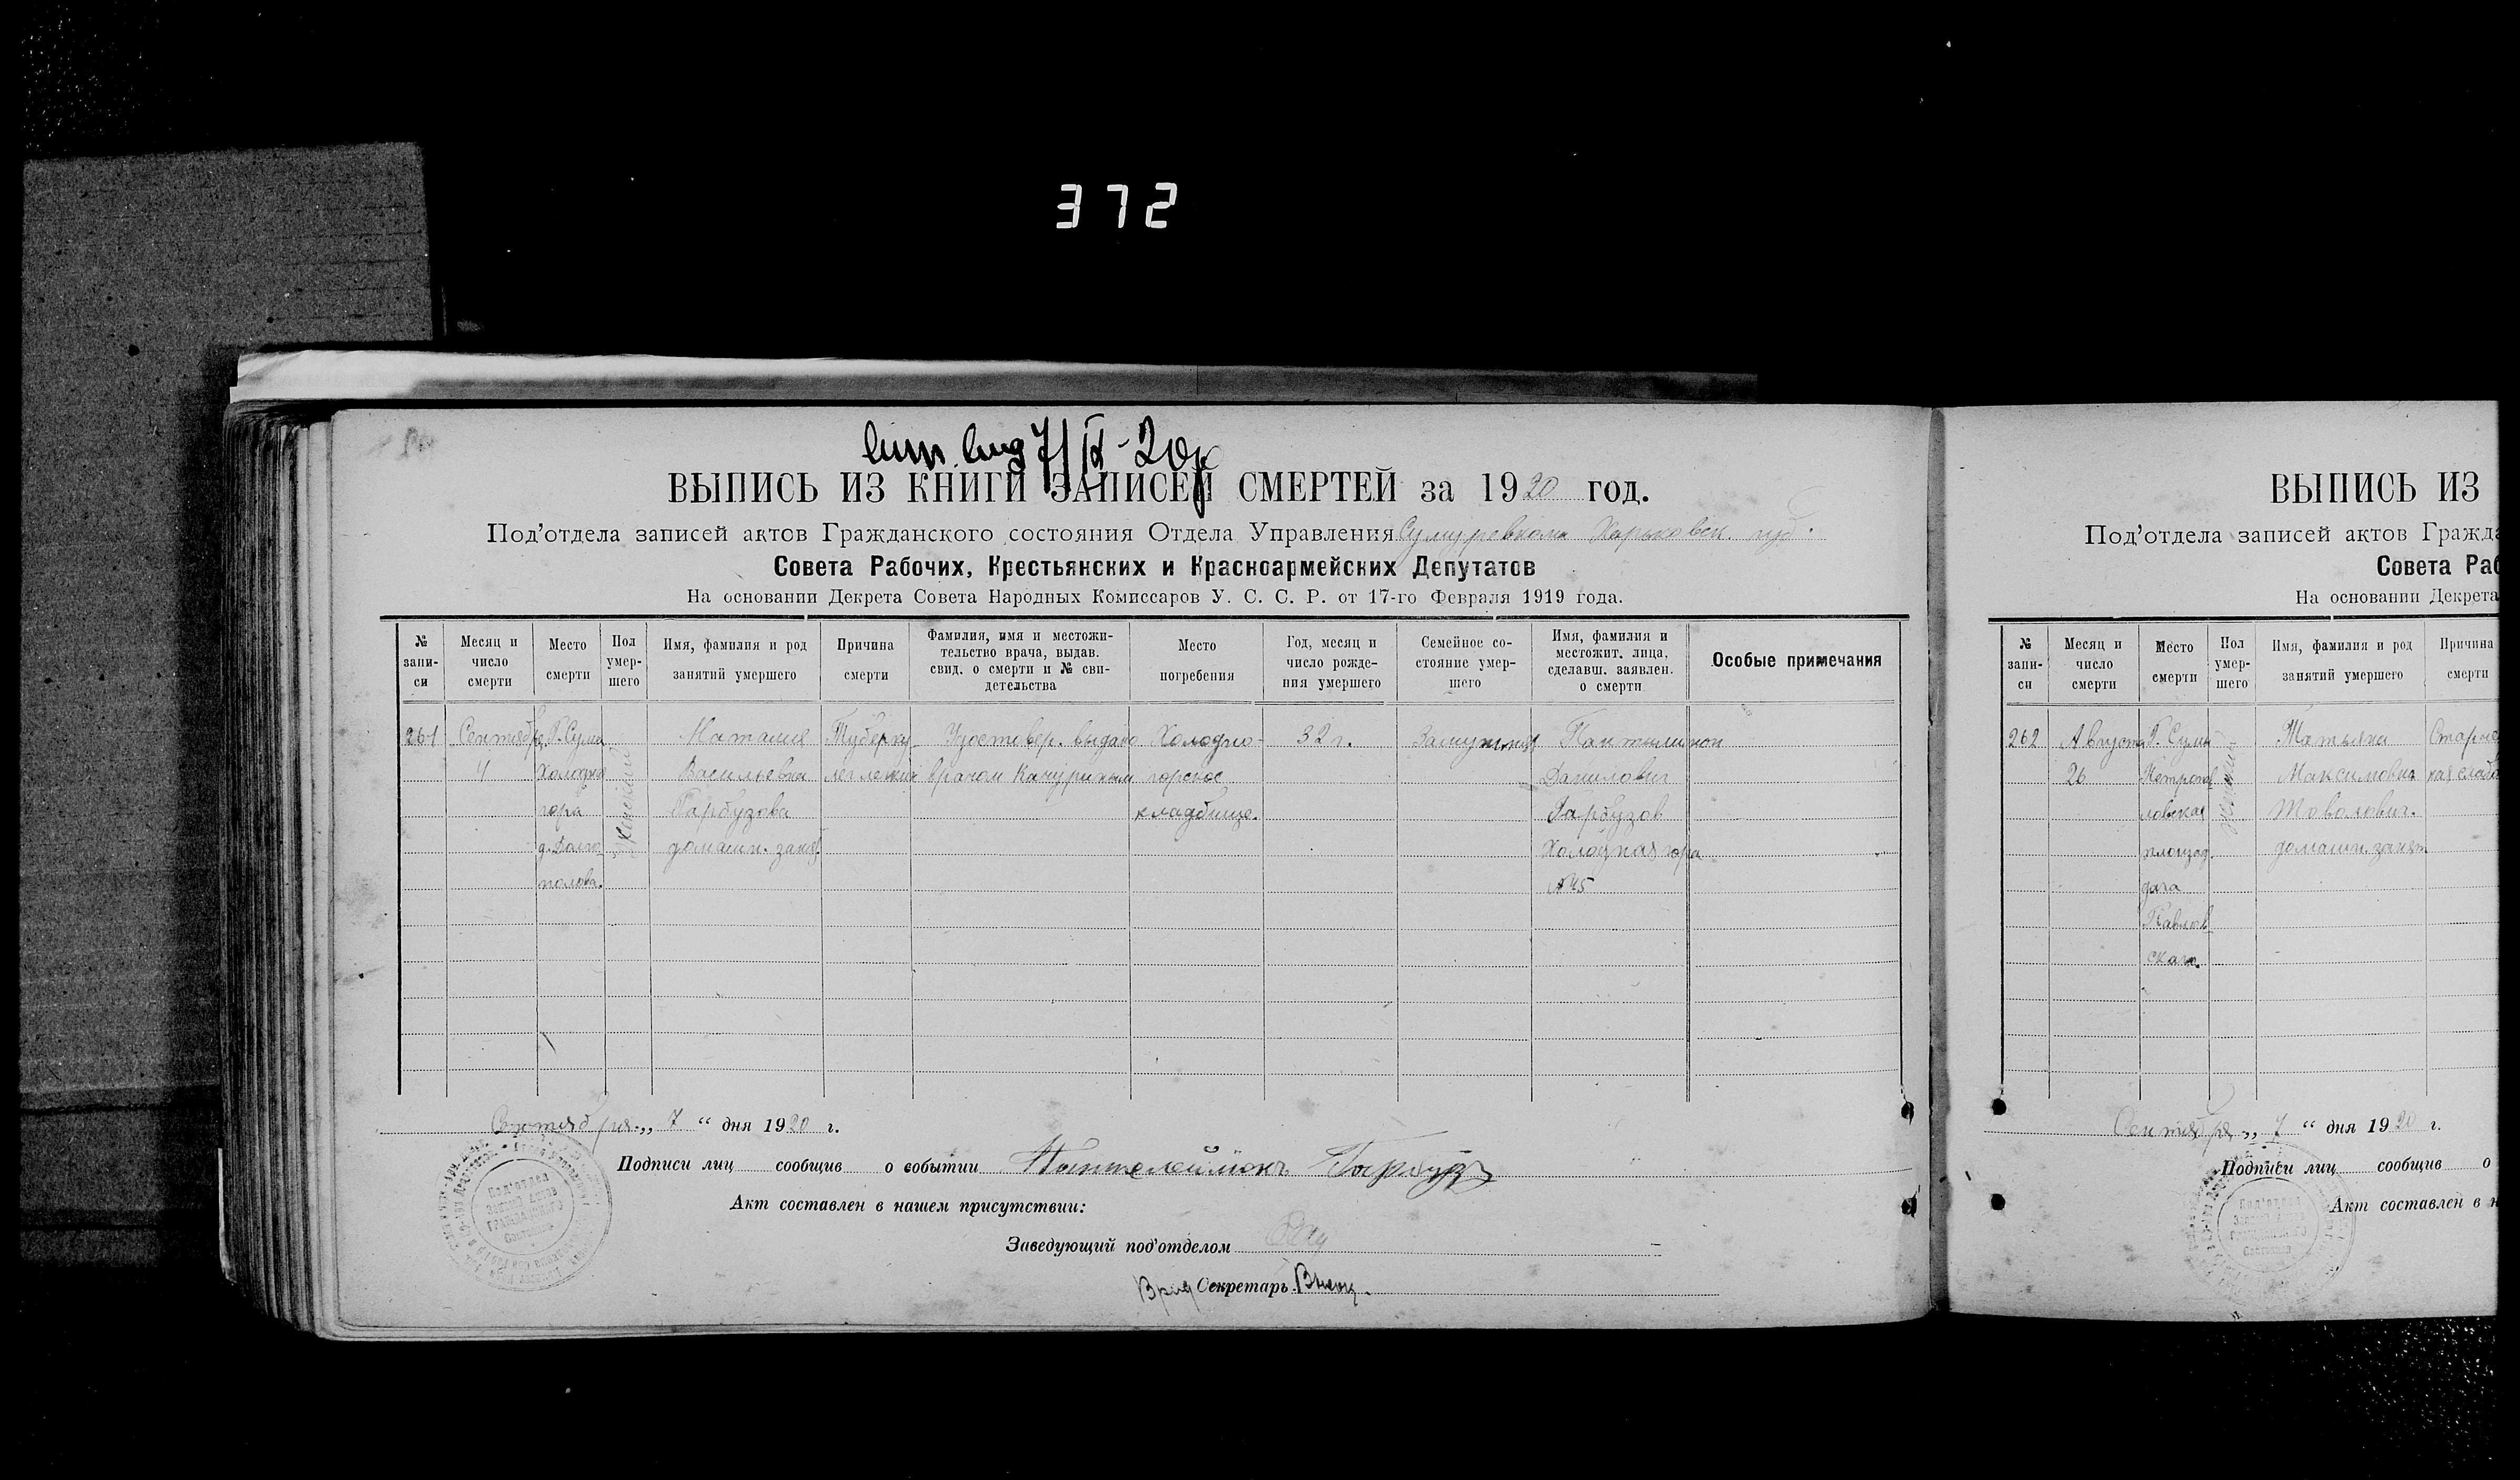 372
7/IX-20
ВЫПИСЬ ИЗ КНИГИ ЗАПИСЕЙ СМЕРТЕЙ за 1920 год.
Под'отдела записей актов Гражданского состояния Отдела Управления Сумуревкома Харьковск. губ.
Совета Рабочих, Крестьянских и Красноармейских Депутатов
На основании Декрета Совета Народных Комиссаров У. С. С. Р. от 17-го Февраля 1919 года.
№ запи-си
Месяц и число смерти
Место смерти
Пол умер-шего
Имя, фамилия и род занятий умершего
Причина смерти
Фамилия, имя и местожи-тельство врача, выдав. свид. о смерти и № сви-детельства
Место погребения
Год, месяц и число рожде-ния умершего
Семейное со-стояние умер-шего
Имя, фамилия и местожит. лица, сделавш. заявлен. о смерти
Особые примечания
261
Сентября
4
Г. Сумы
Холодна
гора
д. Долго
полова.
Женский
Наталия
Васильевна
Гарбузова
домашн. занят.
Туберку
лез легких
Удостовер. выдано
врачом
Холодно-
горское
кладбище.
32 г.
Замужняя
Пантелимон
Данилович
Гарбузов
Холодная гора
№45
Сентября „ 7 “ дня 1920 г.
Подписи лиц сообщив о событии Пантелеймонъ Гарбузъ
Акт составлен в нашем присутствии:
Заведующий под'отделом
Врид Секретарь
Под'отдел
Записей Актов
ГРАЖДАНСКОГО
Состояния
ВЫПИСЬ ИЗ
Под'отдела записей актов Гражда
Совета Раб
На основании Декрета
№ запи-си
Месяц и число смерти
Место смерти
Пол умер-шего
Имя, фамилия и род занятий умершего
Причина смерти
262
Августа
26
Г. Сумы
Петропав
ловская
площад.
дача
Павлов
скаго
Женский
Татьяна
Максимовна
домашн. занят.
Старчес
кая слабо
Сентября „ 7 “ дня 1920 г.
Подписи лиц сообщив о
Акт составлен в н